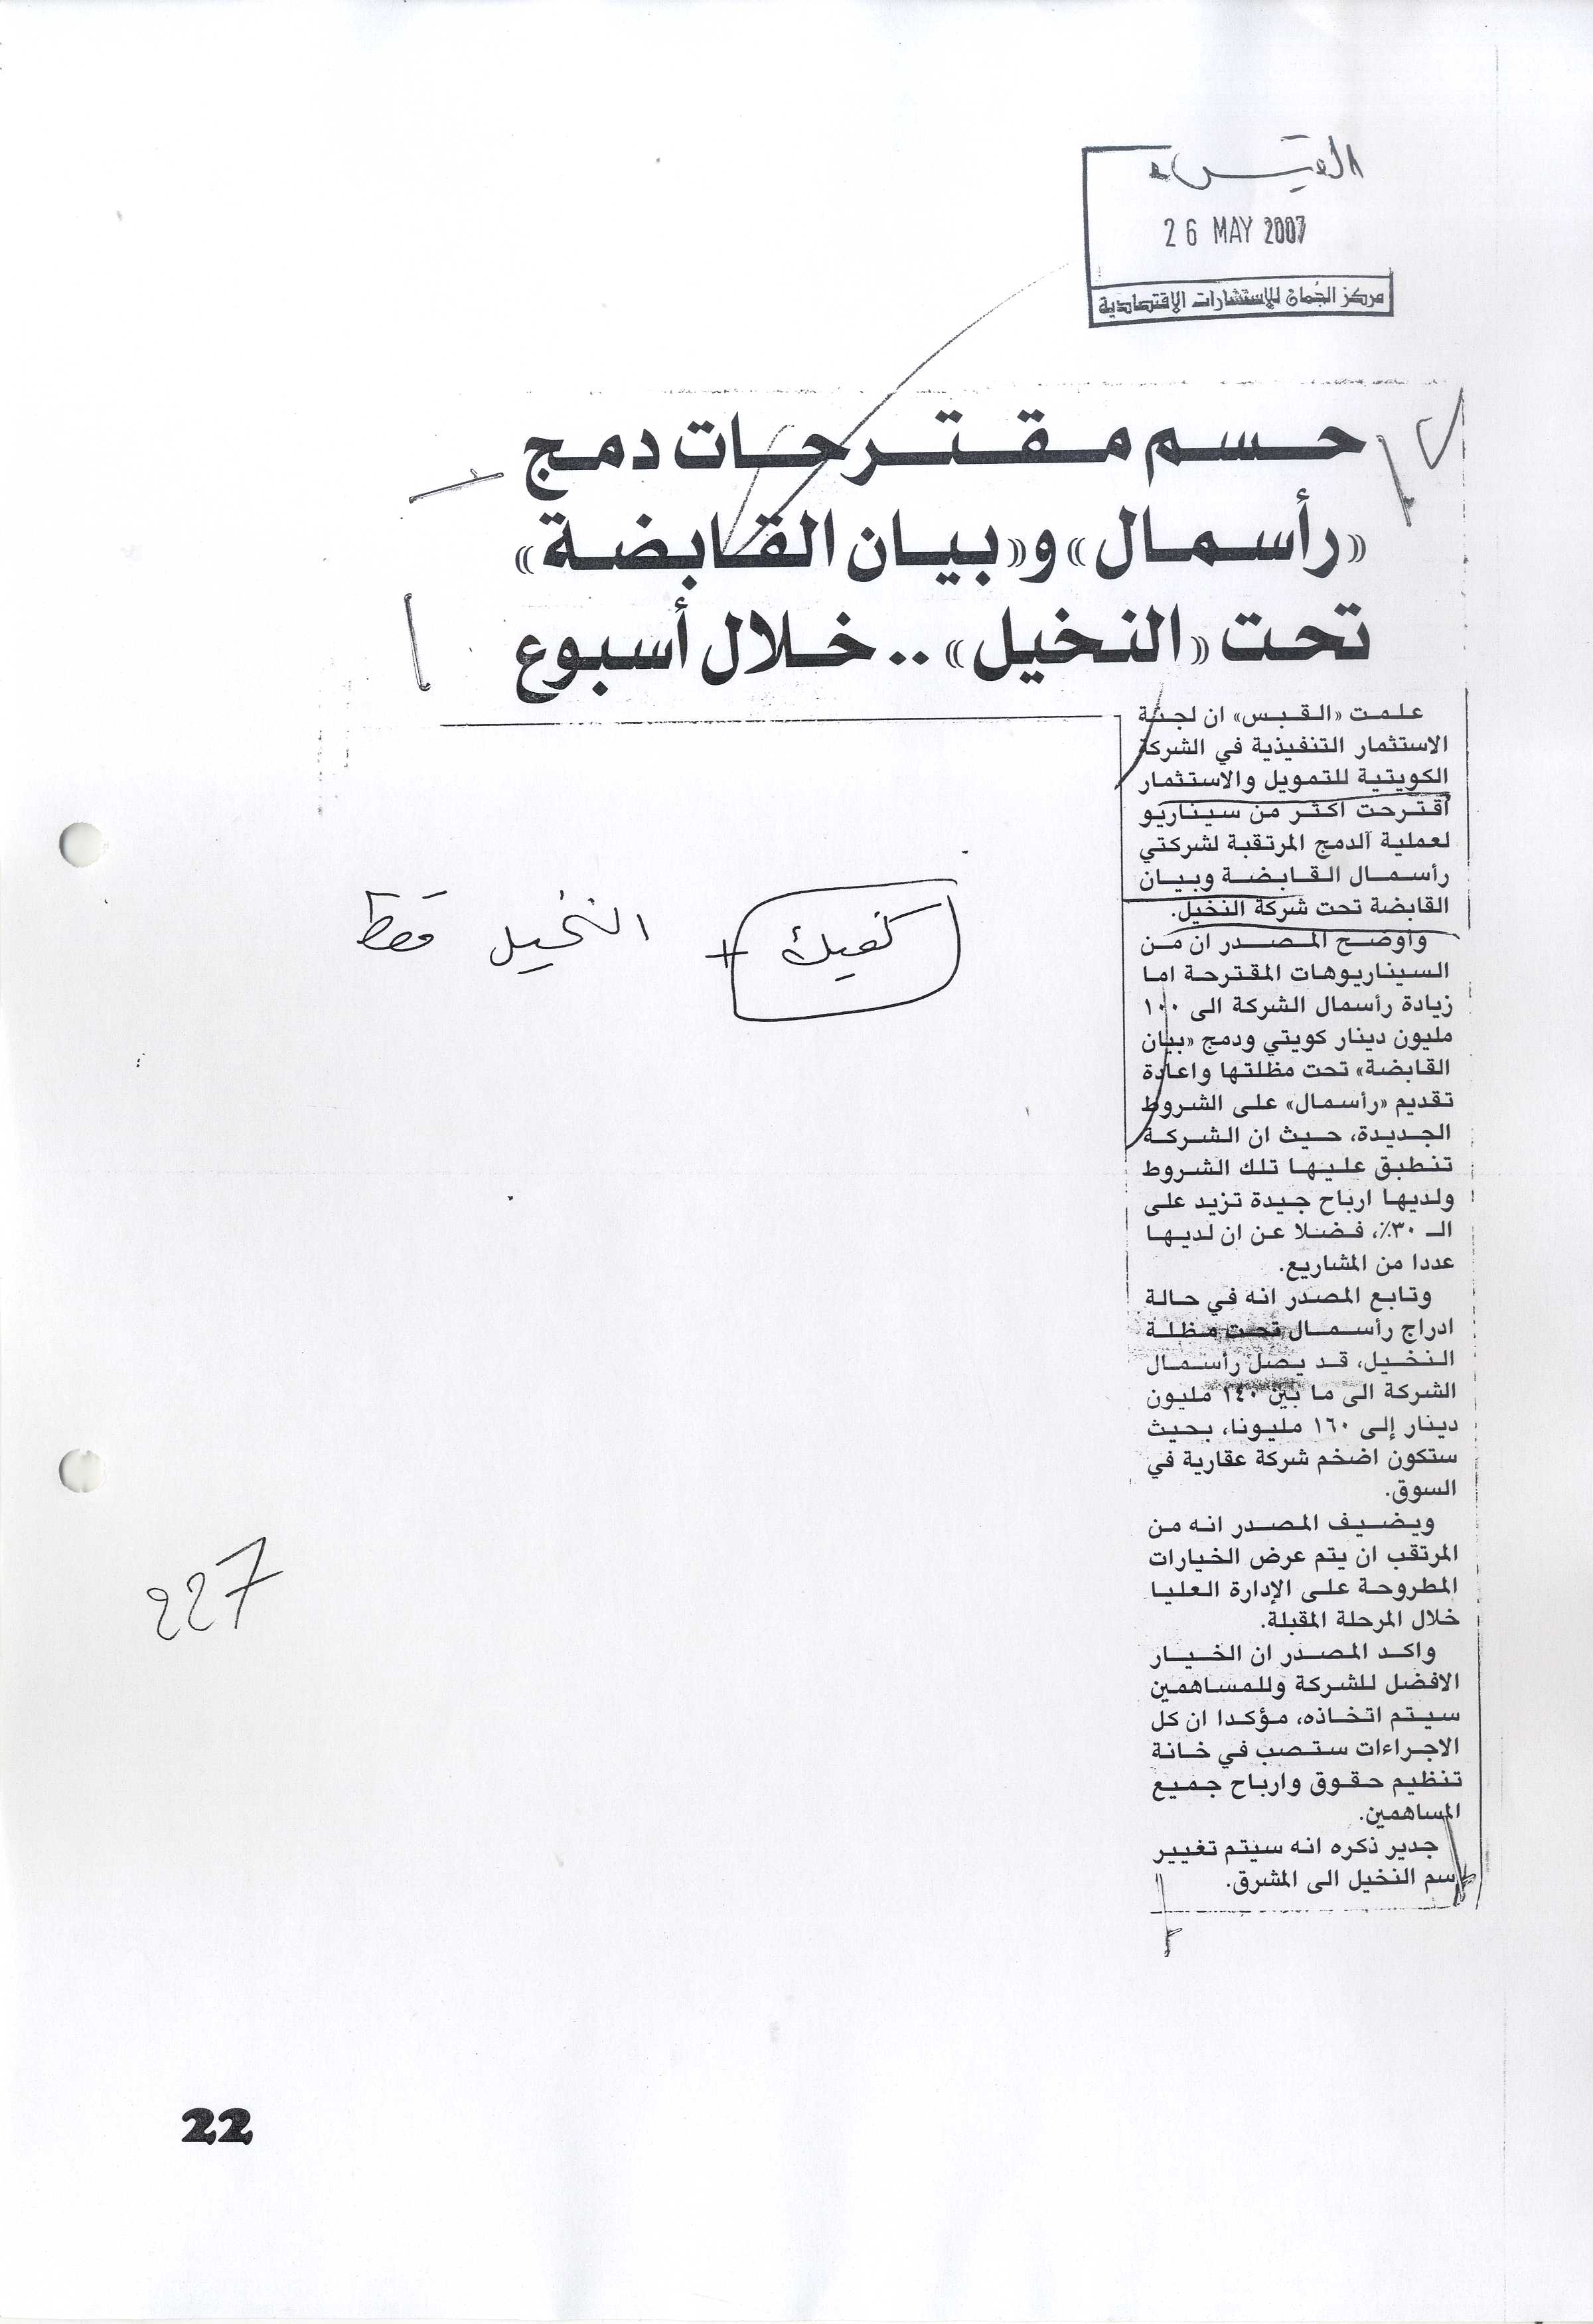 القبس
26 MAY 2007
مركز الجُمان للإستشارات الإقتصادية
حسم مقترحات دمج
«رأسمال» و«بيان القابضة»
تحت «النخيل».. خلال أسبوع
علمت «القبس» ان لجنة
الاستثمار التنفيذية في الشركة
الكويتية للتمويل والاستثمار
اقترحت اكثر من سيناريو
لعملية الدمج المرتقبة لشركتي
رأسمال القابضة وبيان
القابضة تحت شركة النخيل.
وأوضح المصدر ان من
السيناريوهات المقترحة اما
زيادة رأسمال الشركة الى ١٠٠
مليون دينار كويتي ودمج «بيان
القابضة» تحت مظلتها واعادة
تقديم «رأسمال» على الشروط
الجديدة، حيث ان الشركة
تنطبق عليها تلك الشروط
ولديها ارباح جيدة تزيد على
الـ ٣٠٪، فضلا عن ان لديها
عددا من المشاريع.
وتابع المصدر انه في حالة
ادراج رأسمال تحت مظلة
النخيل، قد يصل رأسمال
الشركة الى ما بين ١٤٠ مليون
دينار إلى ١٦٠ مليونا، بحيث
ستكون اضخم شركة عقارية في
السوق.
ويضيف المصدر انه من
المرتقب ان يتم عرض الخيارات
المطروحة على الإدارة العليا
خلال المرحلة المقبلة.
واكد المصدر ان الخيار
الافضل للشركة وللمساهمين
سيتم اتخاذه، مؤكدا ان كل
الاجراءات ستصب في خانة
تنظيم حقوق وارباح جميع
المساهمين.
جدير ذكره انه سيتم تغيير
سم النخيل الى المشرق.
كفيك + النخيل فقط
227
22